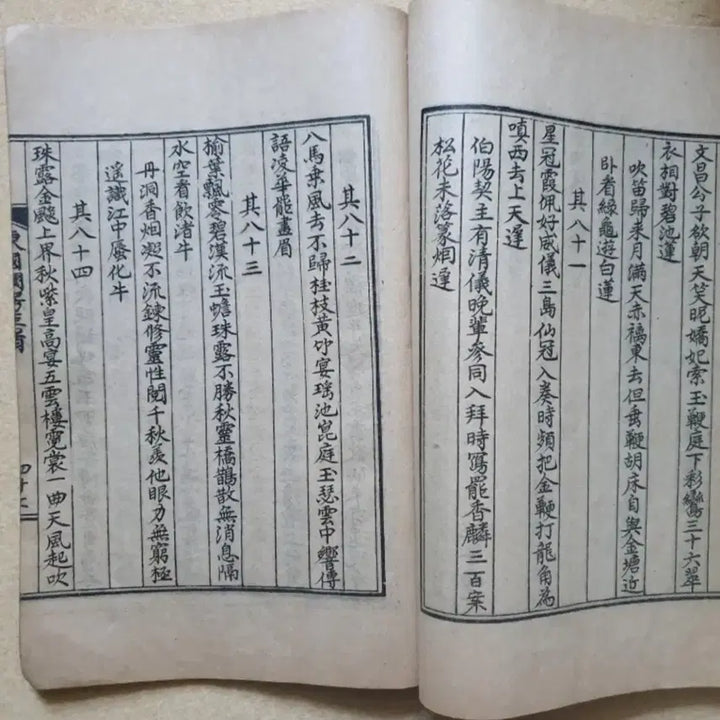 文昌公子欲朝天笑昵嬌妃索玉鞭庭下彩鸞三十六翠
衣相對碧池蓮
吹笛歸来月滿天赤福東去但垂鞭胡床自與金塘近
卧看綠龜遊白蓮
其八十一
星冠霞佩好威儀三島仙冠入奏時頻把金鞭打龍角為
嗔西去上天遅
伯陽契主有清儀晚輩參同入拜時寫罷香麟三百案
松花未落篆烟遅
其八十二
八馬乗風去不歸桂枝黃竹宴瑤池崑庭玉瑟雲中響傳
語凌華罷畫眉
其八十三
榆葉飄零碧漢流玉蟾珠露不勝秋靈橋鵲散無消息隔
水空看飲渚牛
丹洞香烟凝不流鍊修靈性閱千秋羨他眼力無窮極
遥識江中蜃化牛
其八十四
珠露金飈上界秋紫皇高宴五雲樓霓裳一曲天風起吹